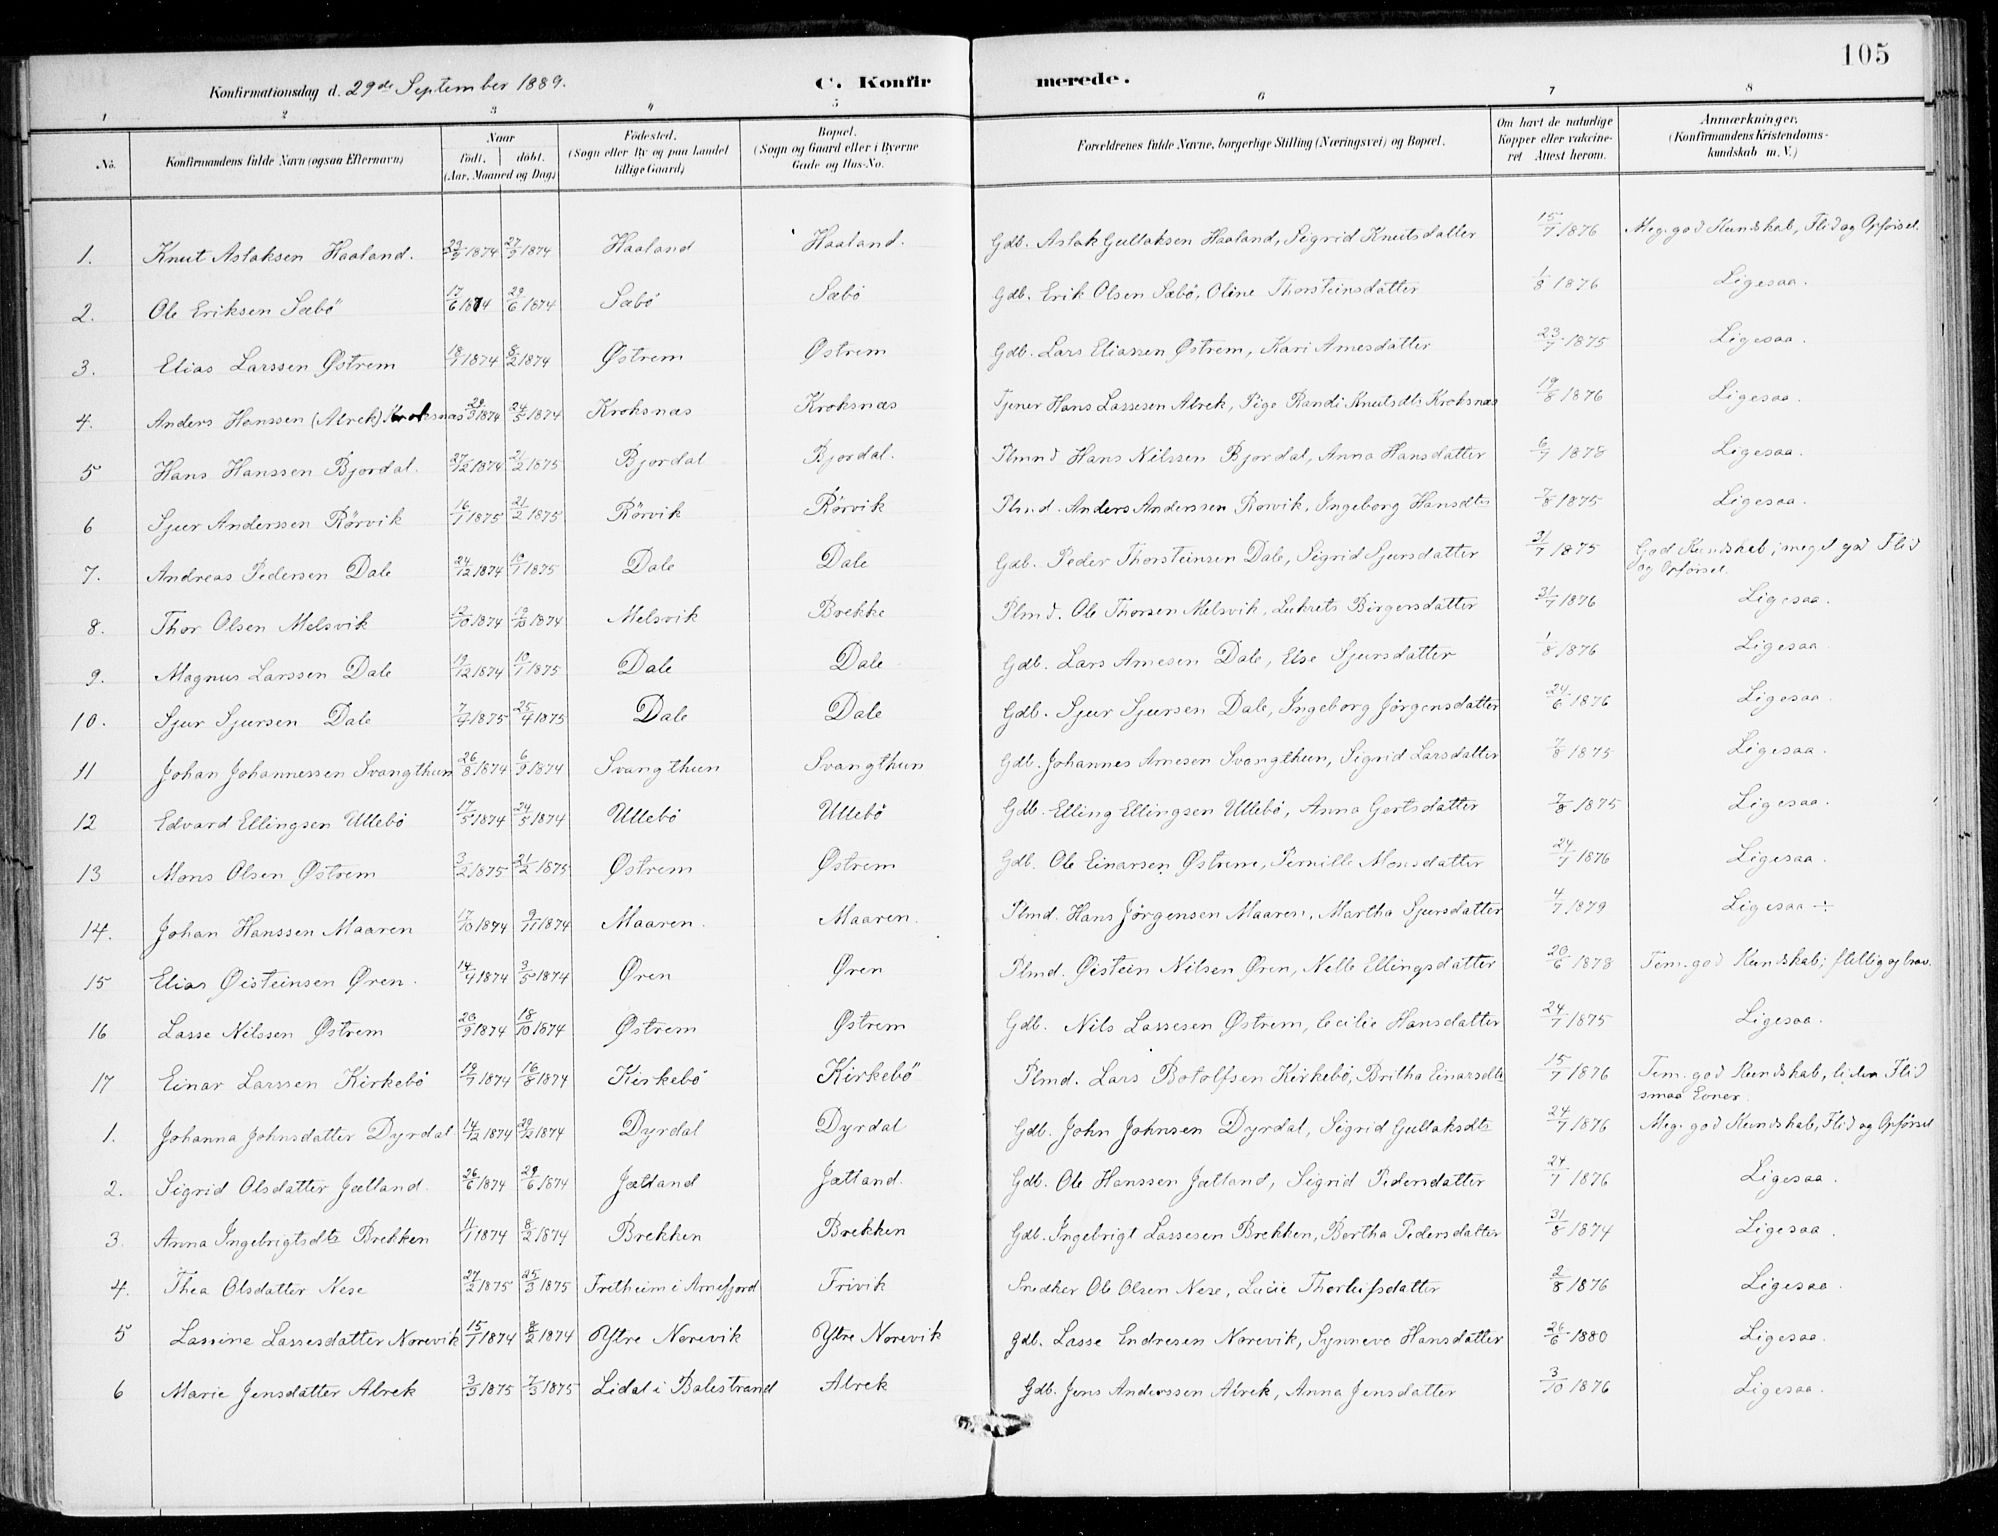 105
Konfirmationsdag d. 29de September 1889. C. Konfir merede.
1 2 3 4 5 6 7 8
No. Konfirmandens fulde Navn (ogsaa Efternavn) Naar födt. döbt. (Aar, Maaned og Dag) Födested. (Sogn eller By og paa Landet tillige Gaard) Bopæl. (Sogn og Gaard eller i Byerne Gade og Hus-No. Forældrenes fulde Navne, borgerlige Stilling (Næringsvei) og Bopæl. Om havt de naturlige Kopper eller vakcineret Attest herom. Anmærkninger, (Konfirmandens Kristendomskundskab m. V.)
1. Knut Aslaksen Haaland. /1874 27/9 1874 Haaland Haaland. Gdb. Aslak Gullaksen Haaland, Sigrid Knutsdatter 15/7 1876 Meg. god Kundskab, Flid og Opførsel.
2. Ole Eriksen Sæbö 17/6 1874 29/6 1874 Sæbö Sæbö Gdb. Erik Olsen Sæbö, Oline Thorsteinsdatter 1/8 1876 Ligesaa.
3. Elias Larssen Østrem 18/1 1874 8/2 1874 Østrem Østrem Gdb. Lars Eliassen Østrem, Kari Arnesdatter 23/7 1875 Ligesaa.
4. Anders Hanssen (Alrek) Kroksnæs /1874 24/5 1874 Kroksnæs Kroksnæs Tjener Hans Lassesen Alrek, Pige Randi Knutsdtr Kroksnæs 19/8 1876 Ligesaa.
5 Hans Hanssen Bjordal. 27/12 1874 21/2 1875 Bjordal Bjordal. Plmnd Hans Nilssen Bjordal, Anna Hansdatter 6/7 1878 Ligesaa.
6 Sjur Anderssen Rörvik 16/1 1875 21/2 1875 Rörvik Rörvik Plmd. Anders Anderssen Rörvik, Ingeborg Hansdtr 7/8 1875 Ligesaa.
7. Andreas Pedersen Dale 24/12 1874 10/1 1875 Dale Dale Gdb. Peder Thorsteinsen Dale, Sigrid Sjursdatter 31/7 1875 God Kundskab; meget god Flid og Opførsel.
8. Thor Olsen Melsvik /10 1874 /10 1874 Melsvik Brekke Plmd. Ole Thorsen Melsvik, Lukrets Birgersdatter 31/7 1876 Ligesaa.
9. Magnus Larssen Dale 19/12 1874 10/1 1875 Dale Dale Gdb. Lars Arnesen Dale, Else Sjursdatter 1/8 1876 Ligesaa.
10. Sjur Sjursen Dale 7/4 1875 25/4 1875 Dale Dale Gdb. Sjur Sjursen Dale, Ingeborg Jörgensdatter 24/6 1876 Ligesaa.
11 Johan Johannessen Svangthun 26/8 1874 6/9 1874 Svangthun Svangthun Gdb. Johannes Arnesen Svangthun, Sigrid Larsdatter 7/8 1875 Ligesaa.
12 Edvard Ellingsen Ullebö 17/5 1874 24/5 1874 Ullebö Ullebö Gdb. Elling Ellingsen Ullebö, Anna Gertsdatter 7/8 1875 Ligesaa.
13 Mons Olsen Østrem 3/2 1875 21/2 1875 Østrem Østrem Gdb. Ole Einarsen Østrem, Pernille Monsdatter 24/7 1876 Ligesaa.
14. Johan Hanssen Maaren 17/10 1874 9/11 1874 Maaren. Maaren. Plmd. Hans Jörgensen Maaren, Martha Sjursdatter 4/7 1879 Ligesaa ÷
15 Elias Øisteinsen Øren. 14/4 1874 3/5 1874 Øren Øren Plmd. Øistein Nilsen Øren, Nelle Ellingsdatter 20/6 1878 Tem. god Kundskab; flittig og brav.
16 Lasse Nilssen Østrem 20/9 1874 18/10 1874 Østrem Østrem Gdb. Nils Lassesen Østrem, Cecilie Hansdatter 24/7 1875 Ligesaa.
17 Einar Larssen Kirkebö 19/7 1874 16/8 1874 Kirkebö Kirkebö Plmd. Lars Botolfsen Kirkebö, Britha Einarsdtr 15/7 1876 Tem. god Kundskab, liden Flid smaa Evner.
1. Johanna Johnsdatter Dyrdal 14/12 1874 /12 1874 Dyrdal Dyrdal Gdb. John Johnsen Dyrdal, Sigrid Gullaksdtr 24/7 1876 Meg. god Kundskab, Flid og Opførsel
2. Sigrid Olsdatter Jætland. 26/6 1874 29/6 1874 Jætland Jætland. Gdb. Ole Hanssen Jætland, Sigrid Pedersdatter 24/7 1876 Ligesaa.
3. Anna Ingebrigtsdtr Brekken 11/1 1874 8/2 1874 Brekken Brekken Gdb. Ingebrigt Lassesen Brekken, Bertha Pedersdatter 31/8 1874 Ligesaa.
4. Thea Olsdatter Nese 27/2 1875 25/3 1875 Fretheim i Arnefjord Frivik Snedker Ole Olsen Nese, Lucie Thorleifsdatter 2/8 1876 Ligesaa.
5 Lassine Lassesdatter Norevik 15/1 1874 8/2 1874 Ytre Norevik Ytre Norevik Gdb. Lasse Endresen Norevik, Synneva Hansdatter 26/6 1880 Ligesaa.
6 Marie Jensdatter Alrek 3/3 1875 7/3 1875 Lidal i Balestrand Alrek Gdb. Jens Anderssen Alrek, Anna Jensdatter 3/10 1876 Ligesaa.